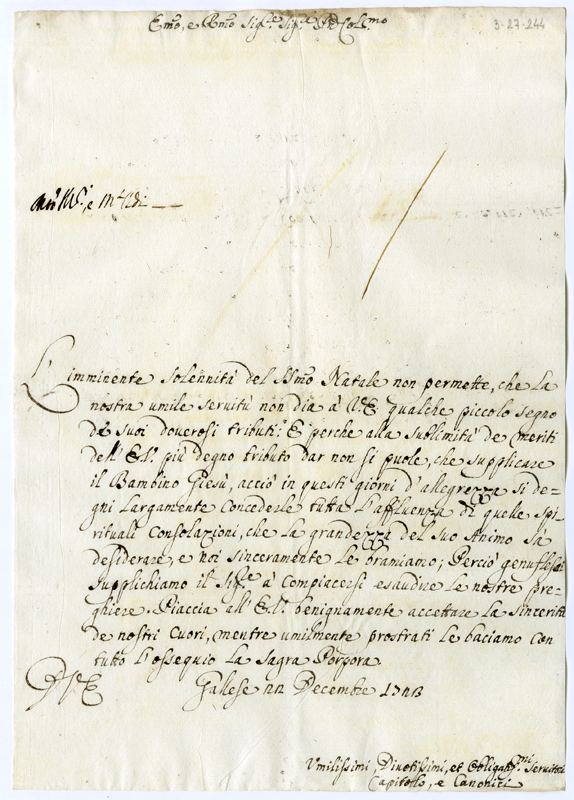 3-27-244
Emo, e Rmo Sig.re Sig.re Pñe Col.mo
L'imminente Solennità del SSmo Natale non permette, che la
nostra umile servitù non dia à V.E. qualche piccolo segno
de suoi doverosi tributi: E perche alla sublimità de meriti
dell' E.V. più degno tributo dar non si puole, che supplicare
il Bambino Giesù, acciò in questi giorni d'allegrezza si de-
gni largamente concederle tutta l'affluenza di quelle spi-
rituali Consolazioni, che la grandezza del Suo Animo sà
desiderare, e noi sinceramente le bramiamo; Perciò genuflessi
supplichiamo il Sig.re à compiacersi esaudire le nostre pre-
ghiere. Piaccia all' E.V. benignamente accettare la sincerità
de nostri Cuori, mentre umilmente prostrati le baciamo con
tutto l'ossequio la Sagra Porpora.
D V.E.
Gallese 22 Decembre
Umilissimi Divotissimi, et Obligat.mi Servitori
Capitolo, e Canonici